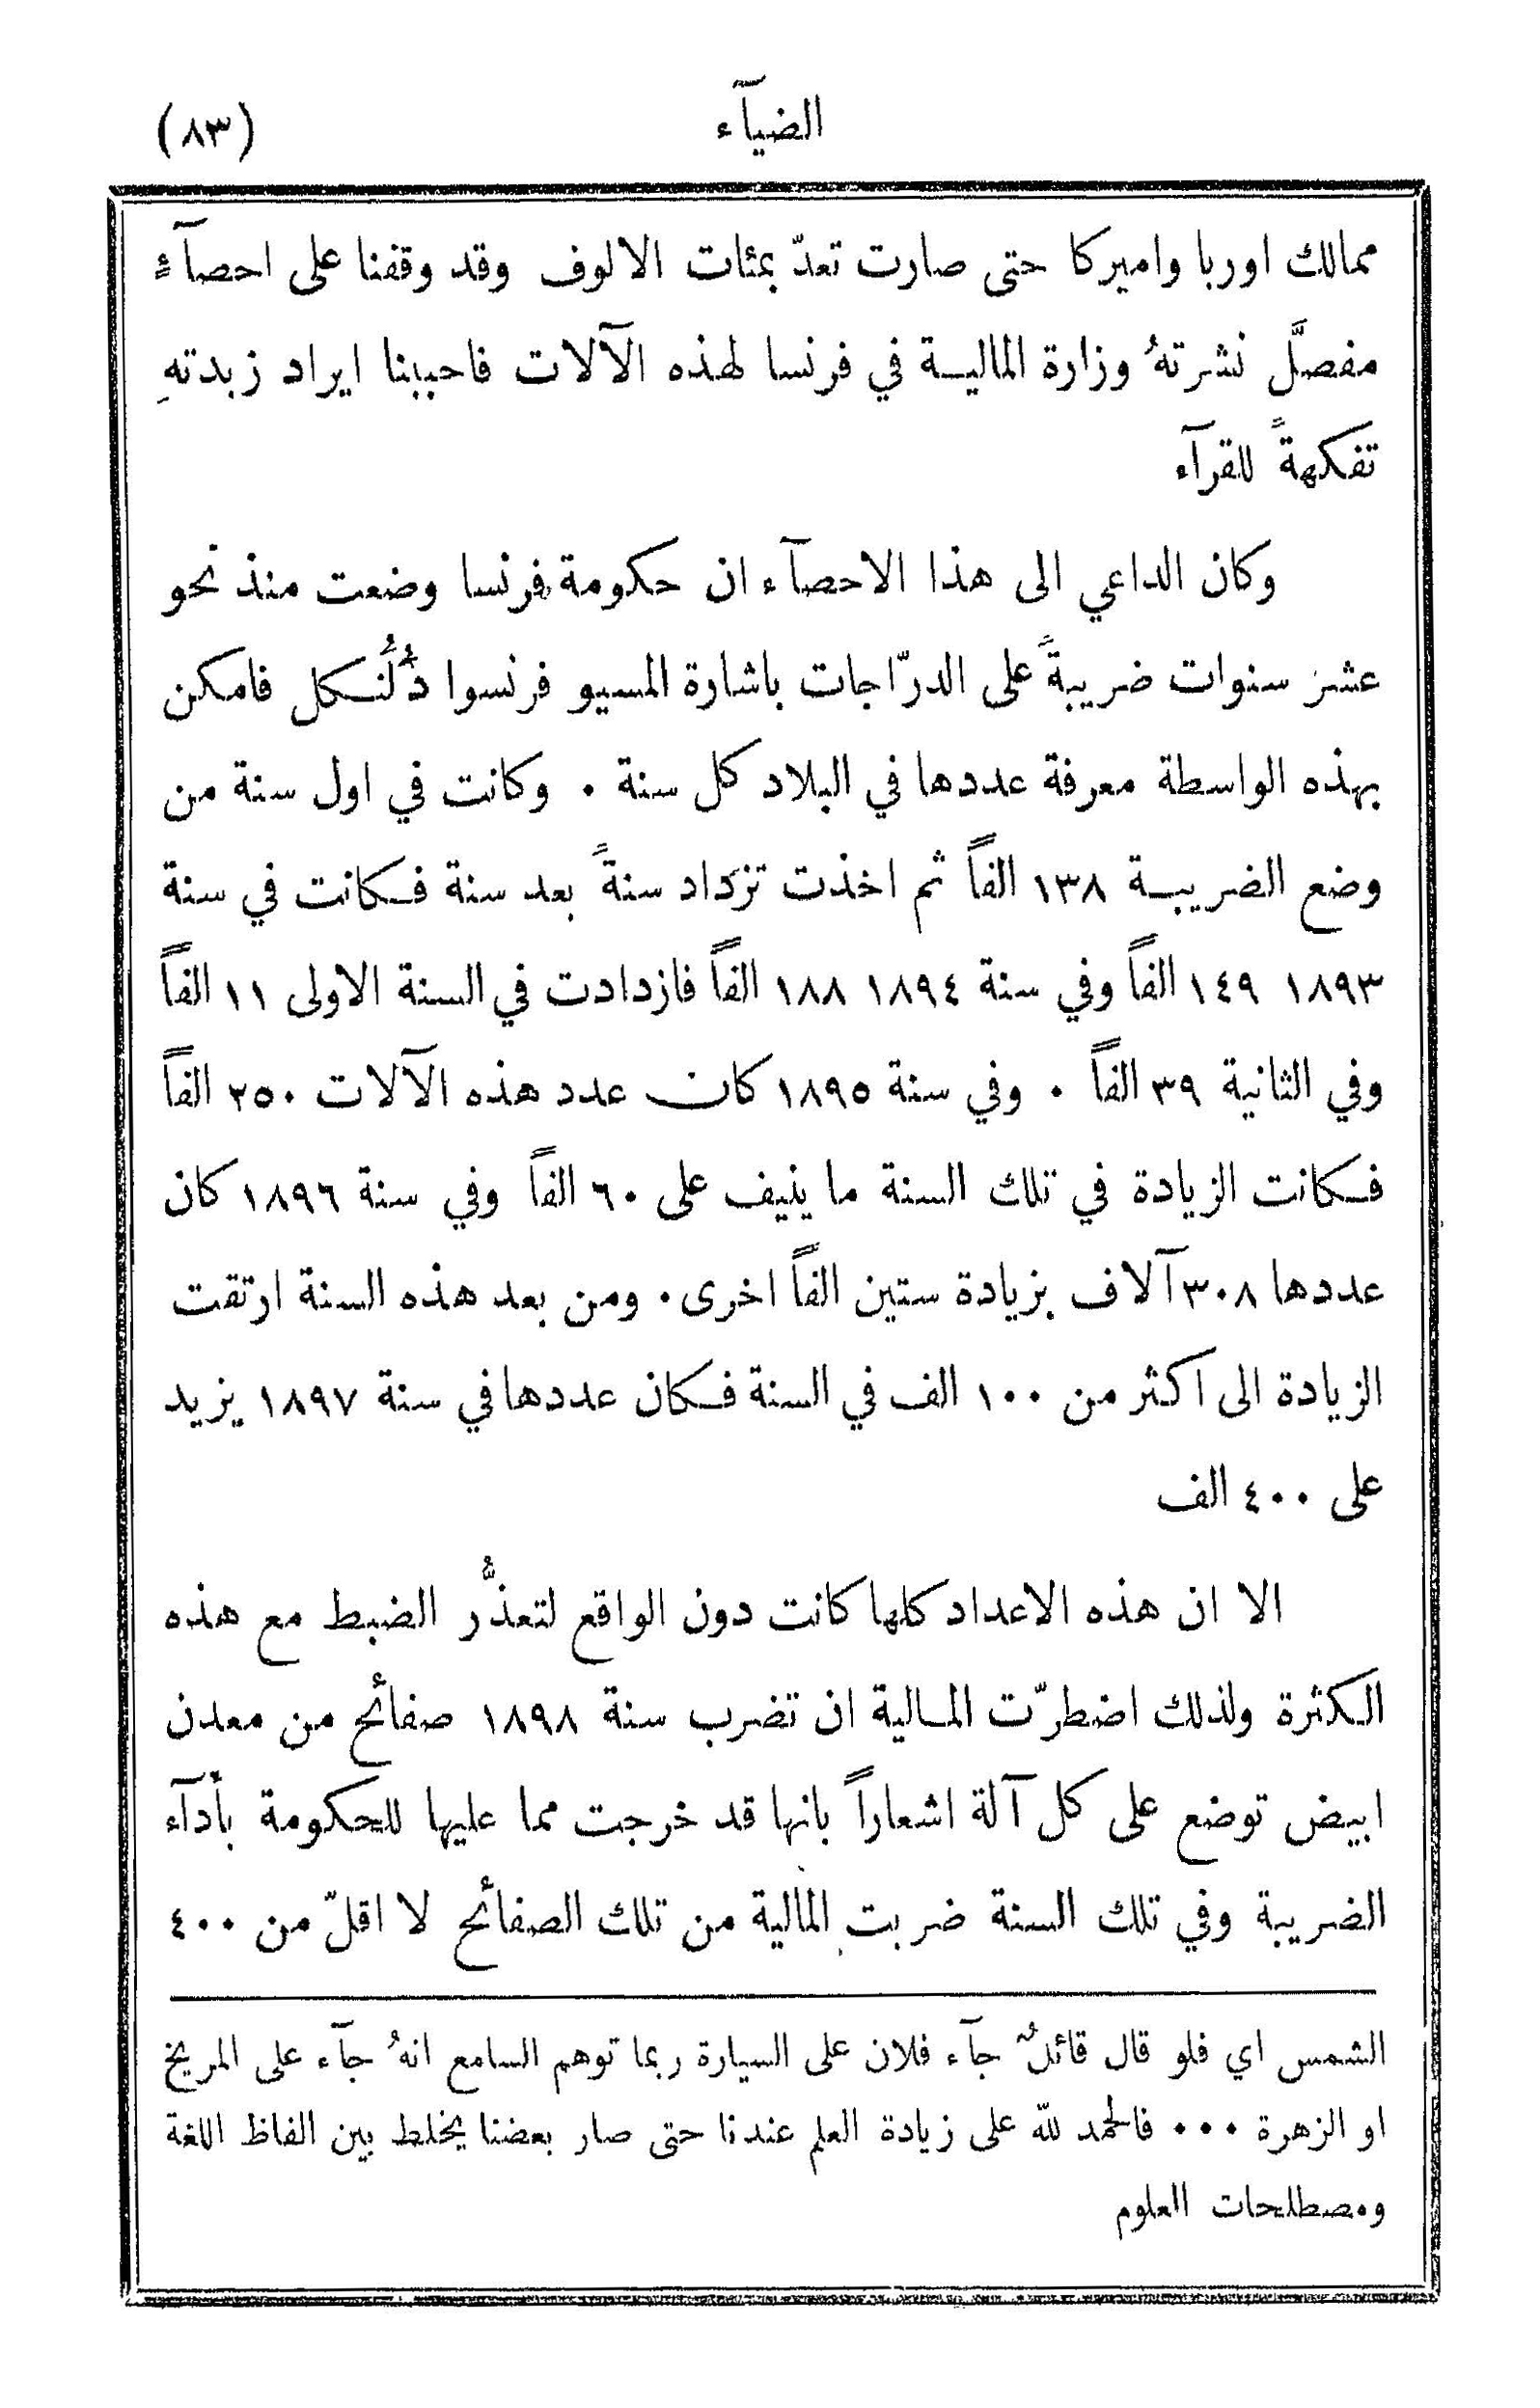 الضيآء
(٨٣)
ممالك اوربا واميركا حتى صارت تعدّ بمئات الالوف وقد وقفنا على احصآءٍ
مفصَّل نشرتهُ وزارة المالية في فرنسا لهذه الآلات فاحببنا ايراد زبدتهِ
تفكهةً للقرآء
وكان الداعي الى هذا الاحصآء ان حكومة فرنسا وضعت منذ نحو
عشر سنوات ضريبةً على الدرّاجات باشارة المسيو فرنسوا دُلُنكل فامكن
بهذه الواسطة معرفة عددها في البلاد كل سنة ٠ وكانت في اول سنة من
وضع الضريبة ١٣٨ الفاً ثم اخذت تزداد سنةً بعد سنة فكانت في سنة
١٨٩٣ ١٤٩ الفاً وفي سنة ١٨٩٤ ١٨٨ الفاً فازدادت في السنة الاولى ١١ الفاً
وفي الثانية ٣٩ الفاً ٠ وفي سنة ١٨٩٥ كان عدد هذه الآلات ٢٥٠ الفاً
فكانت الزيادة في تلك السنة ما ينيف على ٦٠ الفاً وفي سنة ١٨٩٦ كان
عددها ٣٠٨ آلاف بزيادة ستين الفاً اخرى ٠ ومن بعد هذه السنة ارتقت
الزيادة الى اكثر من ١٠٠ الف في السنة فكان عددها في سنة ١٨٩٧ يزيد
على ٤٠٠ الف
الا ان هذه الاعداد كلها كانت دون الواقع لتعذُّر الضبط مع هذه
الكثرة ولذلك اضطرّت المالية ان تضرب سنة ١٨٩٨ صفائح من معدن
ابيض توضع على كل آلة اشعاراً بانها قد خرجت مما عليها للحكومة بأدآء
الضريبة وفي تلك السنة ضربت المالية من تلك الصفائح لا اقلّ من ٤٠٠
الشمس اي فلو قال قائلٌ جآء فلان على السيارة ربما توهم السامع انهُ جآء على المريخ
او الزهرة ٠٠٠ فالحمد لله على زيادة العلم عندنا حتى صار بعضنا يخلط بين الفاظ اللغة
ومصطلحات العلوم